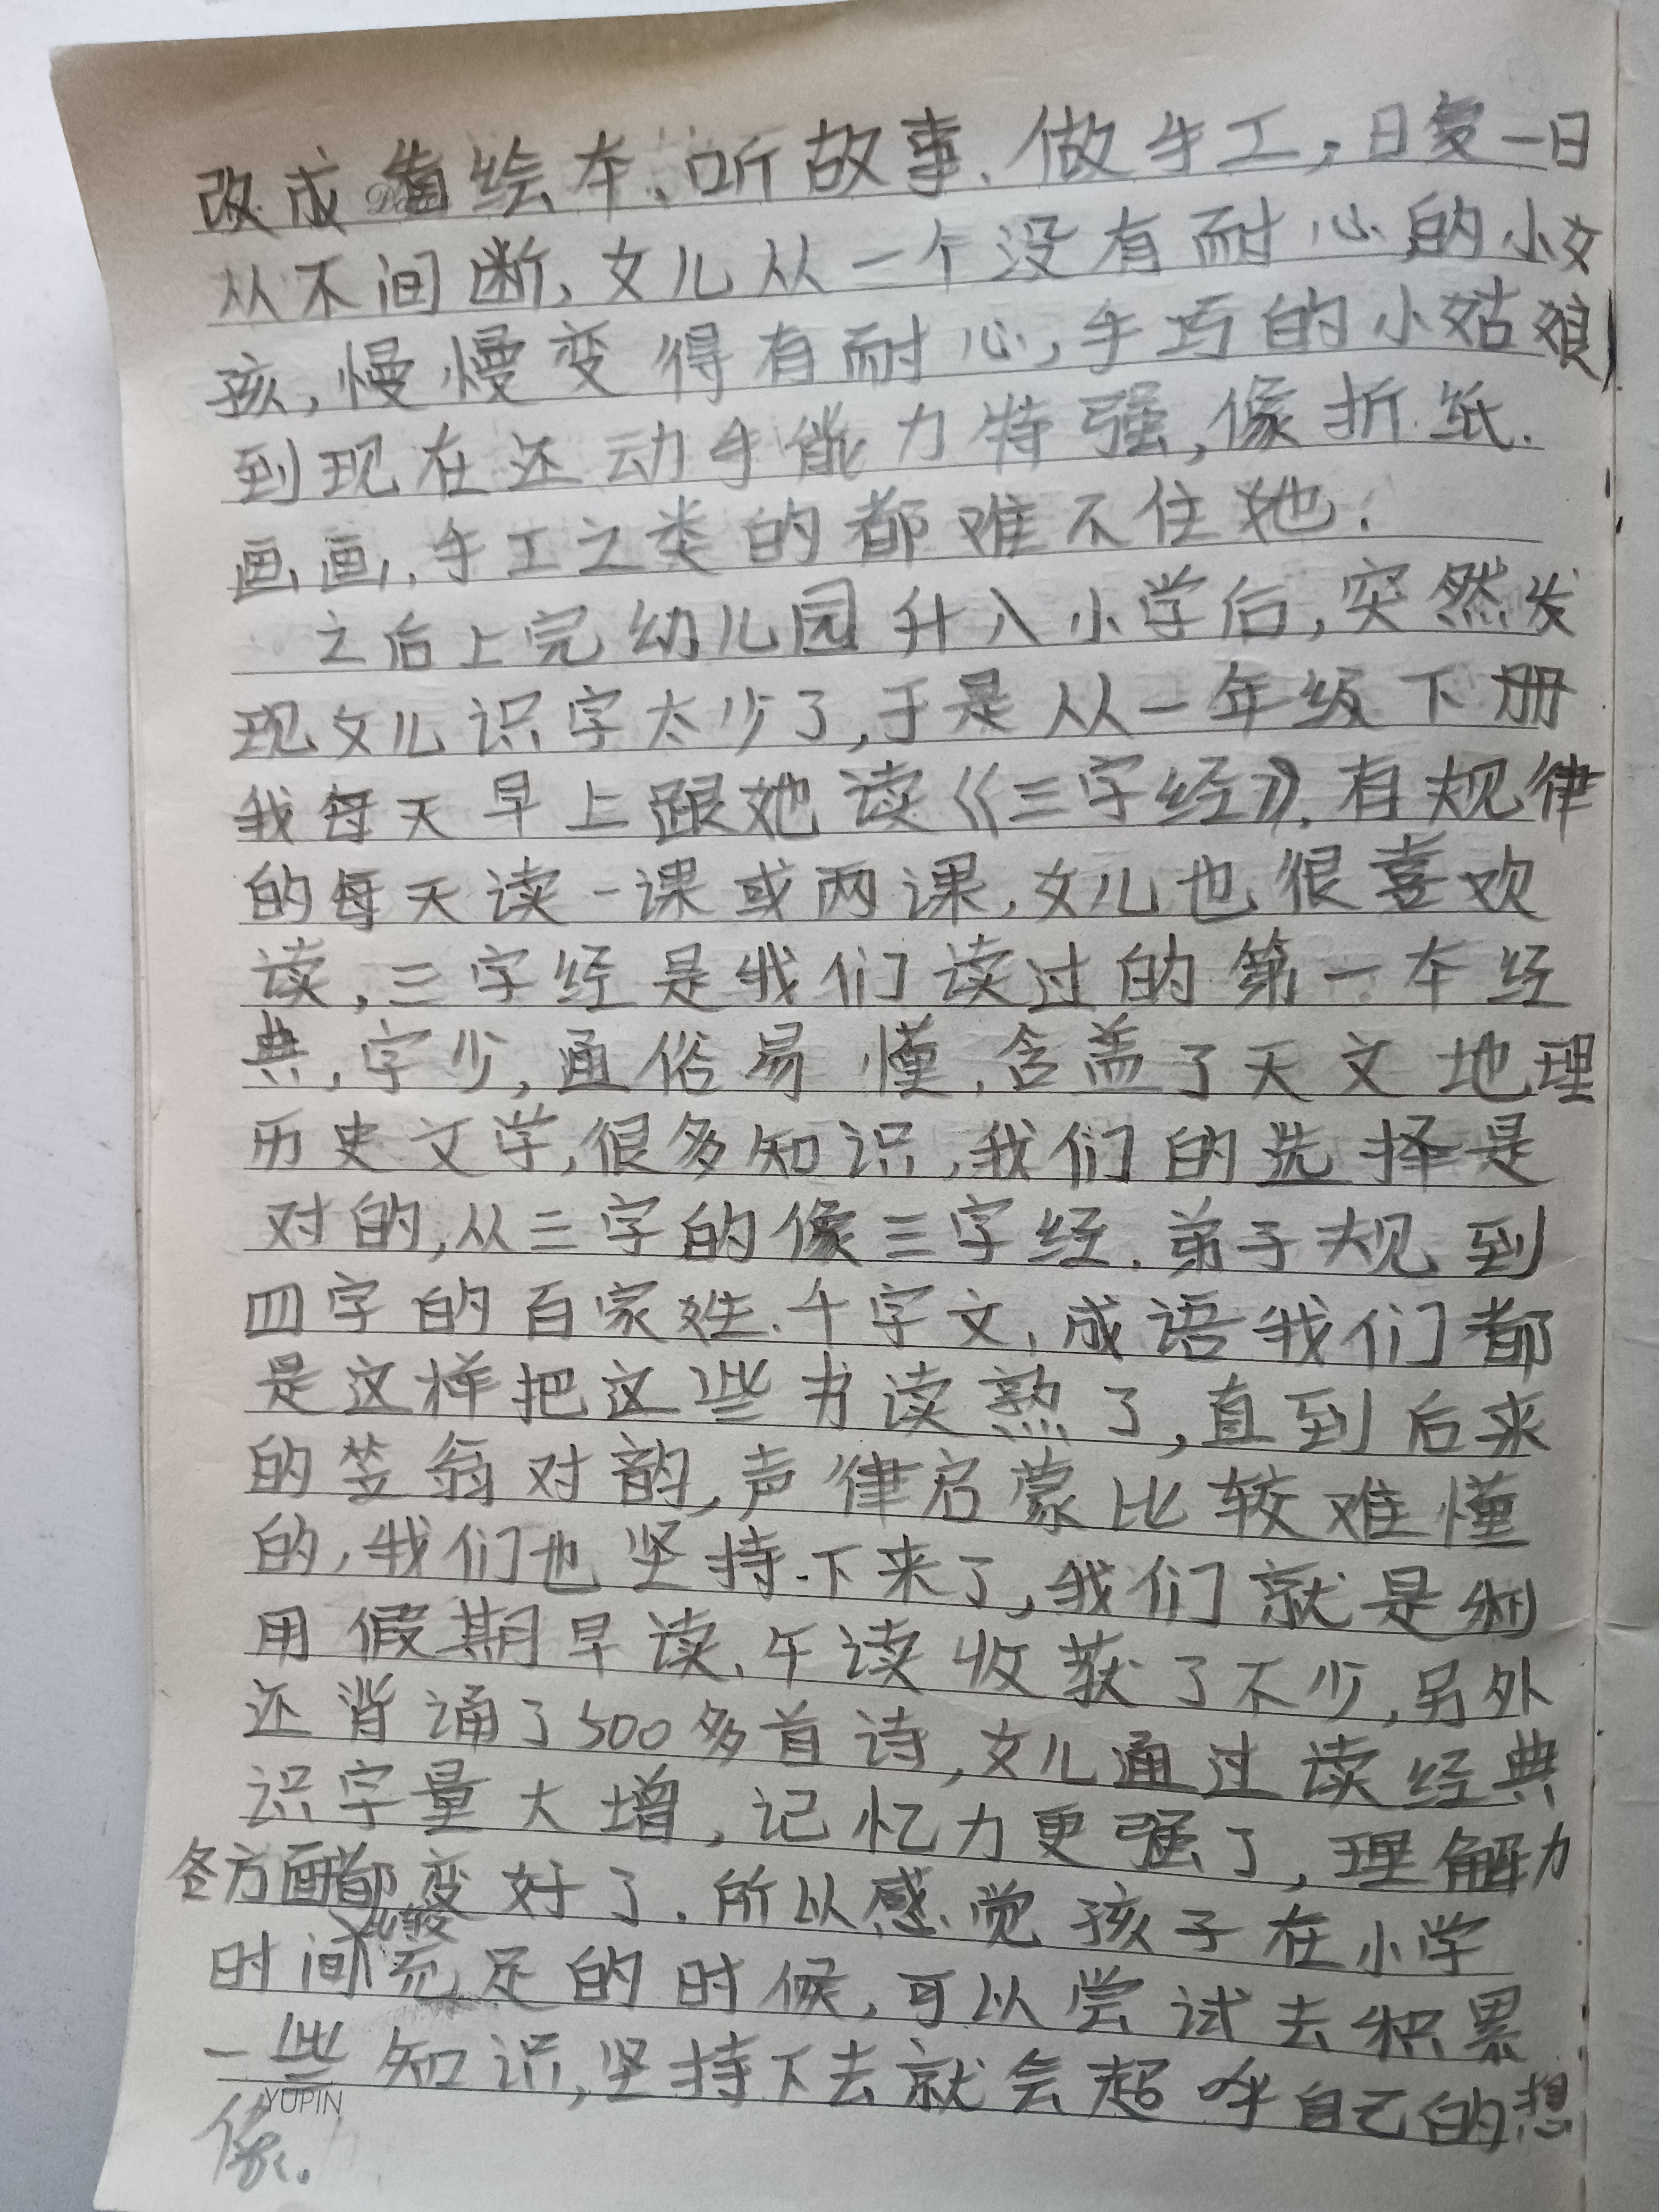 改成看绘本、听故事、做手工，日复一日
从不间断，女儿从一个没有耐心的小女
孩，慢慢变得有耐心，手巧的小姑娘
到现在还动手能力特强，像折纸.
画画，手工之类的都难不住她.
之后上完幼儿园升入小学后，突然发
现女儿识字太少了，于是从一年级下册
我每天早上跟她读《三字经》，有规律
的每天读一课或两课，女儿也很喜欢
读，三字经是我们读过的第一本经
典，字少，通俗易懂，含盖了天文地理
历史文学，很多知识，我们的选择是
对的，从三字的像三字经.弟子规到
四字的百家姓.千字文，成语我们都
是这样把这些书读熟了，直到后来
的笠翁对韵，声律启蒙比较难懂
的，我们也坚持下来了，我们就是利
用假期早读、午读收获了不少，另外
还背诵了500多首诗，女儿通过读经典
识字量大增，记忆力更强了，理解力
各方面都变好了.所以感觉孩子在小学
时间比较充足的时候，可以尝试去积累
一些知识，坚持下去就会超乎自己的想
YUPIN
像。